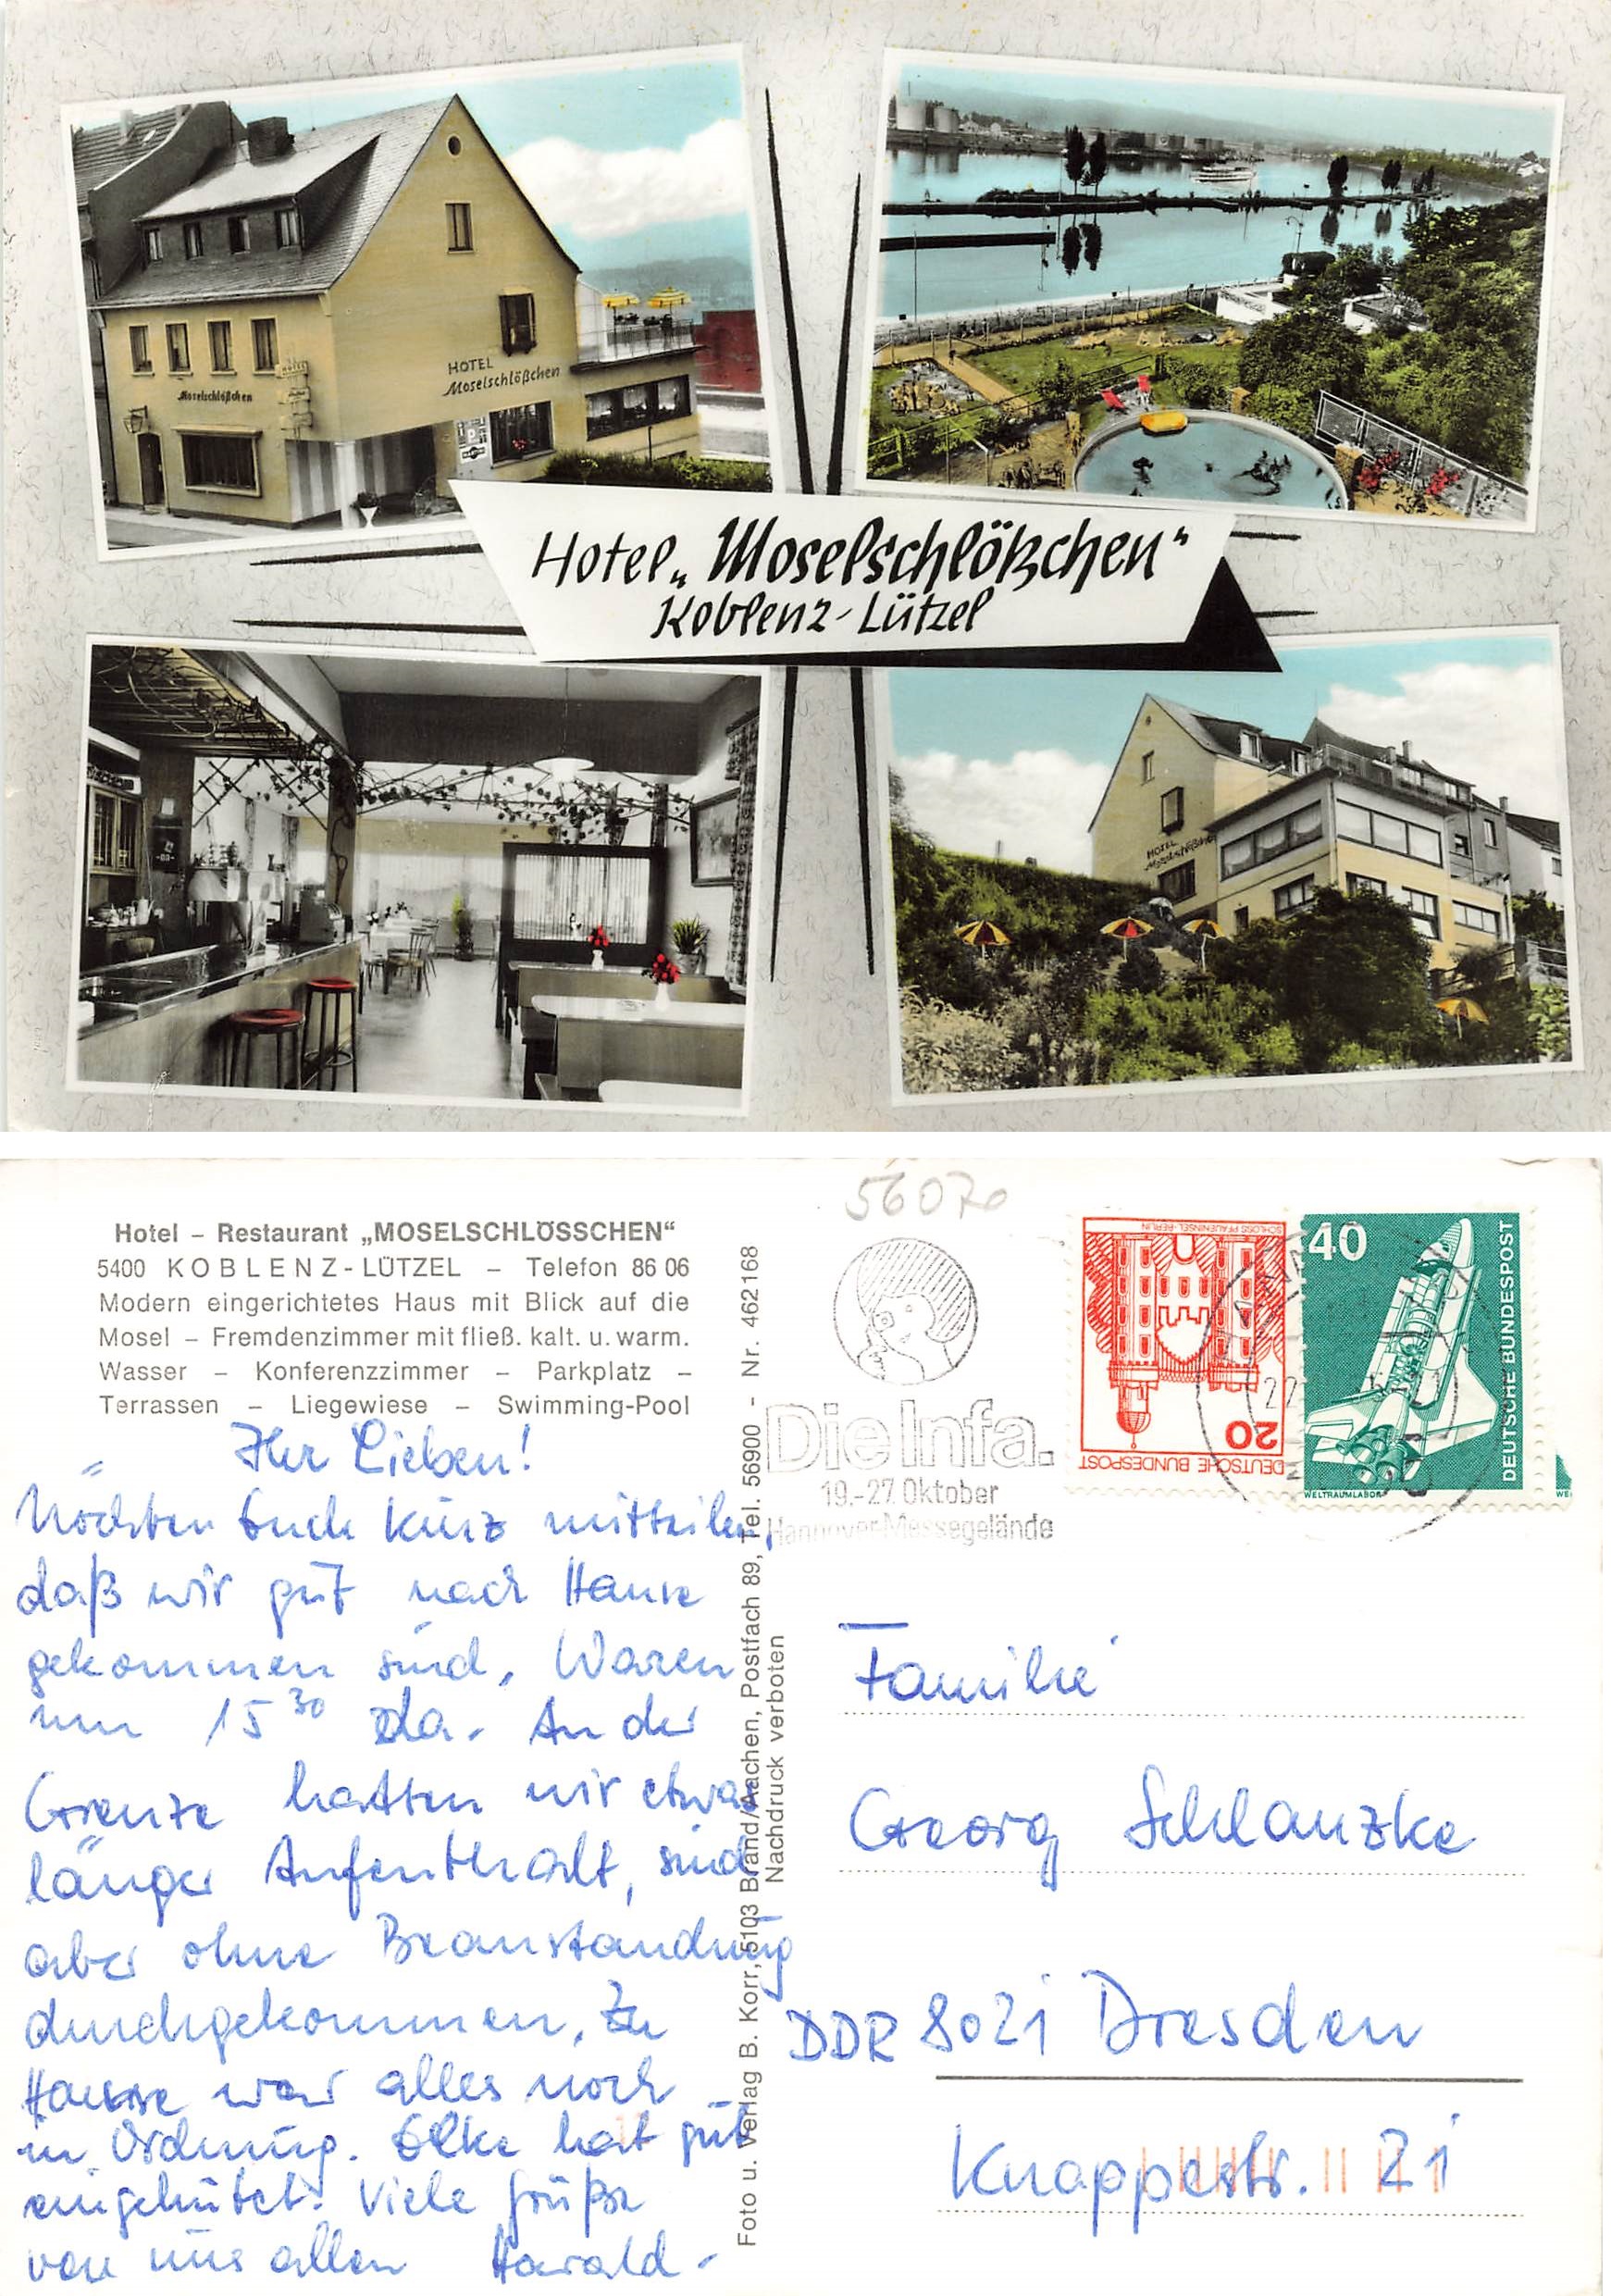 HOTEL
Moselschlößchen
Moselschlößchen
HOTEL
Hotel „Moselschlößchen“
Koblenz-Lützel
HOTEL
Moselschlößchen
56070
Hotel – Restaurant „MOSELSCHLÖSSCHEN“
5400 KOBLENZ-LÜTZEL – Telefon 86 06
Modern eingerichtetes Haus mit Blick auf die
Mosel – Fremdenzimmer mit fließ. kalt. u. warm.
Wasser – Konferenzzimmer – Parkplatz –
Terrassen – Liegewiese – Swimming-Pool
Ihr Lieben!
Möchten Euch kurz mitteilen,
daß wir gut nach Hause
gekommen sind. Waren
um 15 30 da. An der
Grenze hatten wir etwas
länger Aufenthalt, sind
aber ohne Beanstandung
durchgekommen. Zu
Hause war alles noch
in Ordnung. Elke hat gut
eingehütet. Viele Grüße
von uns allen Harald -
Foto u. Verlag B. Korr, 5103 Brand/Aachen, Postfach 89, Tel. 56900 - Nr. 462168
Nachdruck verboten
Die Infa.
19.-27. Oktober
Hannover-Messegelände
SCHLOSS PFAUENINSEL-BERLIN
20
DEUTSCHE BUNDESPOST
40
DEUTSCHE BUNDESPOST
WELTRAUMLABOR
Familie
Georg Schlanzke
DDR 8021 Dresden
Knappestr. 21